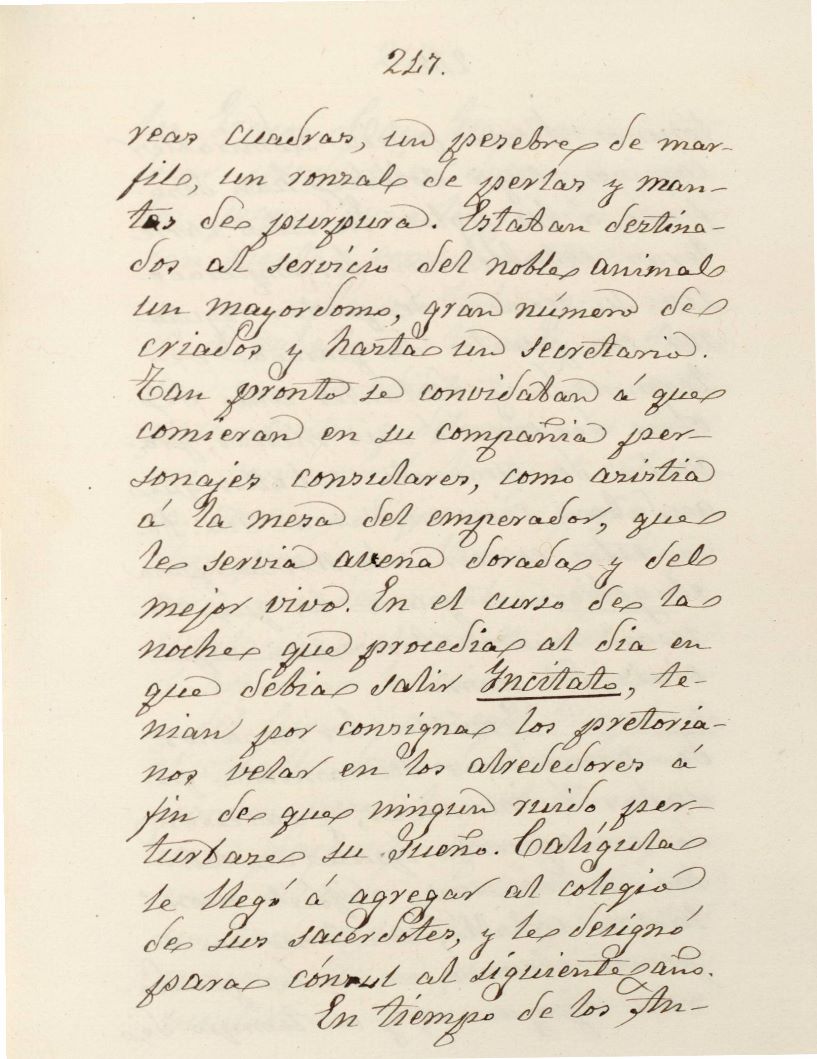 217.
reas cuadras, un pesebre de mar-
fil, un ronzal de perlas y man-
tas de purpura. Estaban destina-
dos al servicio del noble animal
un mayordomo, gran número de
criados y hasta un secretario.
Tan pronto se convidaban á que
comieran en su compañia per-
sonajes consulares, como asistia
á la mesa del emperador, que
le servia avena dorada y del
mejor vivo. En el curso de la
noche que procedia al dia en
que debia salir Incitato, te-
nian por consigna los pretoria-
nos velar en los alrededores á
fin de que ningun ruido per-
turbase su sueño. Calígula
le llegó á agregar al colegio
de sus sacerdotes, y le designó
para cónsul al siguiente año.
En tiempo de los An-